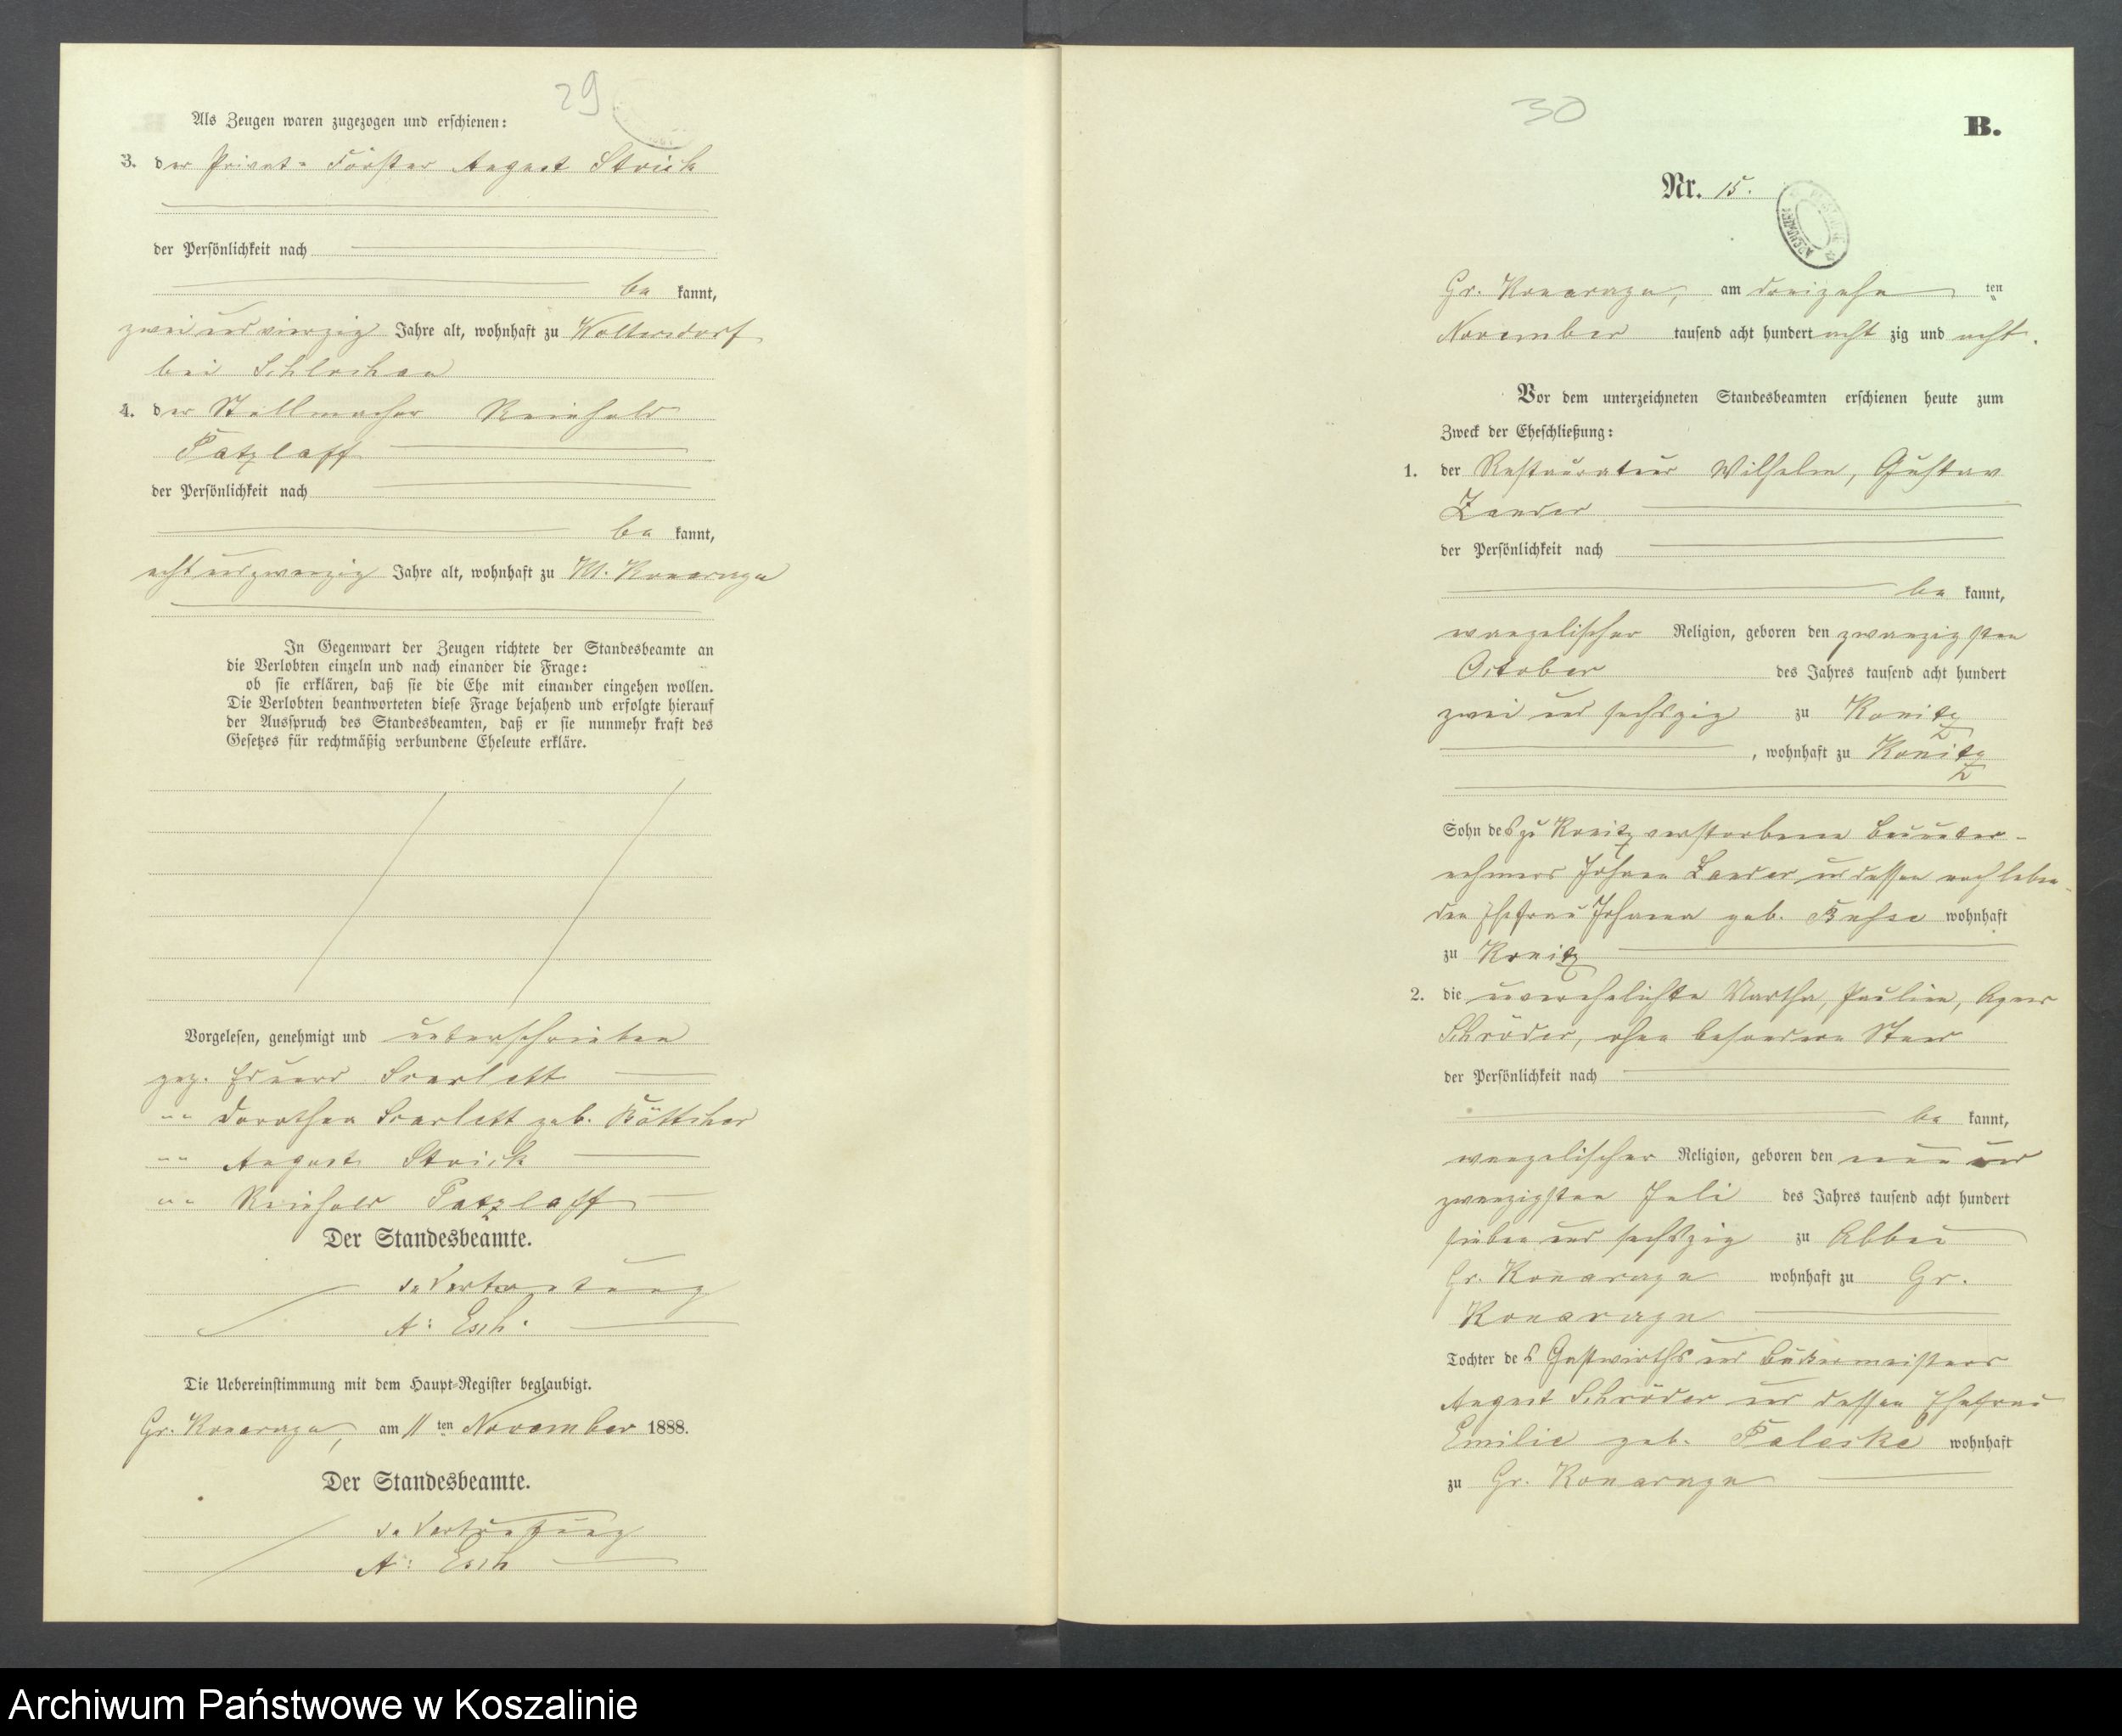 29
Als Zeugen waren zugezogen und erschienen:
3. der Privat-Förster August Strick
der Persönlichkeit nach
be kannt,
zwei und vierzig Jahre alt, wohnhaft zu Woltersdorf
bei Schlochau
4. der Stellmacher Reinhold
Patzlaff
der Persönlichkeit nach
be kannt,
acht und zwanzig Jahre alt, wohnhaft zu Kl. Konarzyn
In Gegenwart der Zeugen richtete der Standesbeamte an
die Verlobten einzeln und nach einander die Frage:
ob sie erklären, daß sie die Ehe mit einander eingehen wollen.
Die Verlobten beantworteten diese Frage bejahend und erfolgte hierauf
der Ausspruch des Standesbeamten, daß er sie nunmehr kraft des
Gesetzes für rechtmäßig verbundene Eheleute erkläre.
Vorgelesen, genehmigt und unterschrieben
gez. Eduard Scarlett
"" Dorothea Scarlett geb. Böttcher
"" August Strick
"" Reinhold Patzlaff
Der Standesbeamte.
In Vertretung
A: Esch.
Die Uebereinstimmung mit dem Haupt-Register beglaubigt.
Gr. Konarzyn, am 11 ten November 1888.
Der Standesbeamte.
In Vertretung
A: Esch
30
B.
Nr. 15.
Gr. Konarzyn, am dreizehn ten
November tausend acht hundert acht zig und acht.
Vor dem unterzeichneten Standesbeamten erschienen heute zum
Zweck der Eheschließung:
1. der Restaurateur Wilhelm, Gustav
Zander
der Persönlichkeit nach
be kannt,
evangelischer Religion, geboren den zwanzigsten
October des Jahres tausend acht hundert
zwei und sechszig zu Konitz
, wohnhaft zu Konitz
Sohn des zu Konitz verstorbenen Bauunter-
nehmers Johann Zander und dessen nachleben-
den Ehefrau Johanna geb. wohnhaft
zu Konitz
2. die unverehelichte Martha, Pauline, Agnes
Schröder, ohne besonderen Stand
der Persönlichkeit nach
be kannt,
evangelischer Religion, geboren den neun und
zwanzigsten Juli des Jahres tausend acht hundert
sieben und sechszig zu Abbau
Gr. Konarzyn wohnhaft zu Gr.
Konarzyn
Tochter des Gastwirths und Bäckermeisters
August Schröder und dessen Ehefrau
Emilie geb. Paleske wohnhaft
zu Gr. Konarzyn
Archiwum Państwowe w Koszalinie